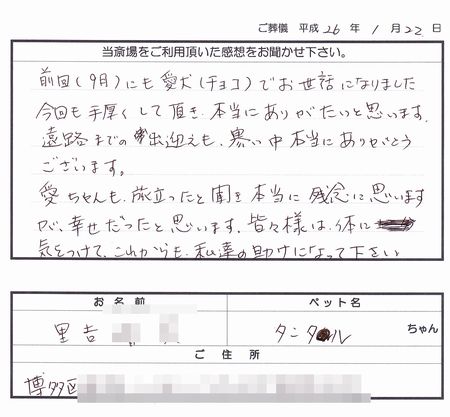 ご葬儀 平成 26 年 1 月 22 日
当斎場をご利用頂いた感想をお聞かせ下さい。
前回(9月)にも愛犬(チョコ)でお世話になりました
今回も手厚くして頂き、本当にありがたいと思います。
遠路までの出迎えも、寒い中本当にありがとう
ございます。
愛ちゃんも、旅立ったと聞き本当に残念に思います
が、幸せだったと思います。皆々様は、体に
気をつけて、これからも、私達の助けになって下さい
お名前 ペット名
里吉 タニタル ちゃん
ご住所
博多区